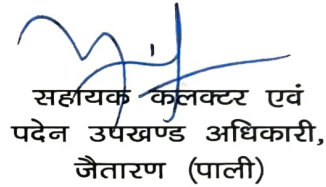 सहायक कलक्टर एवं
पदेन उपखण्ड अधिकारी,
जैतारण (पाली)